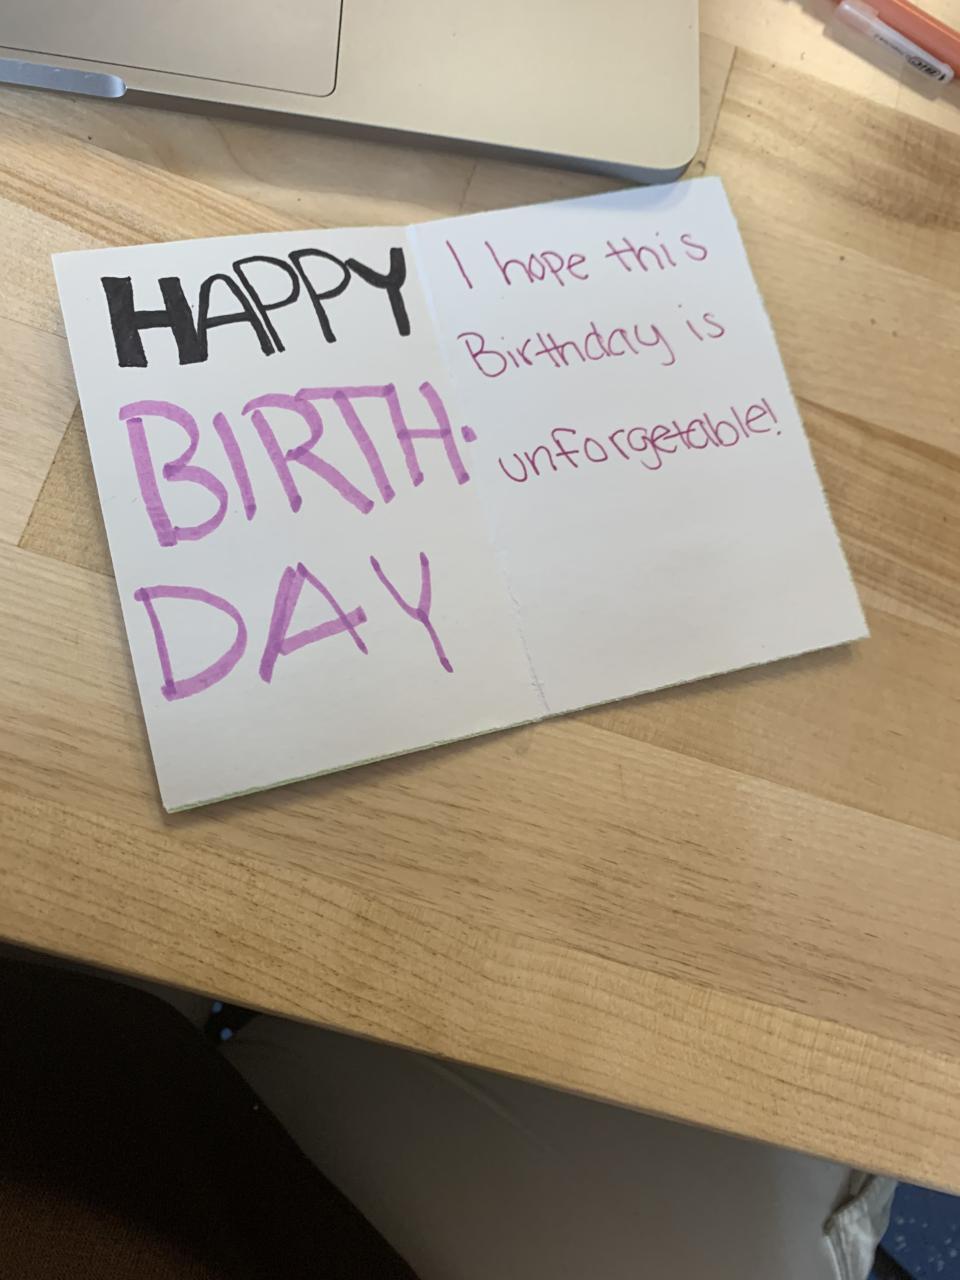 HAPPY
BIRTH-
DAY
I hope this
Birthday is
unforgetable!
BIC